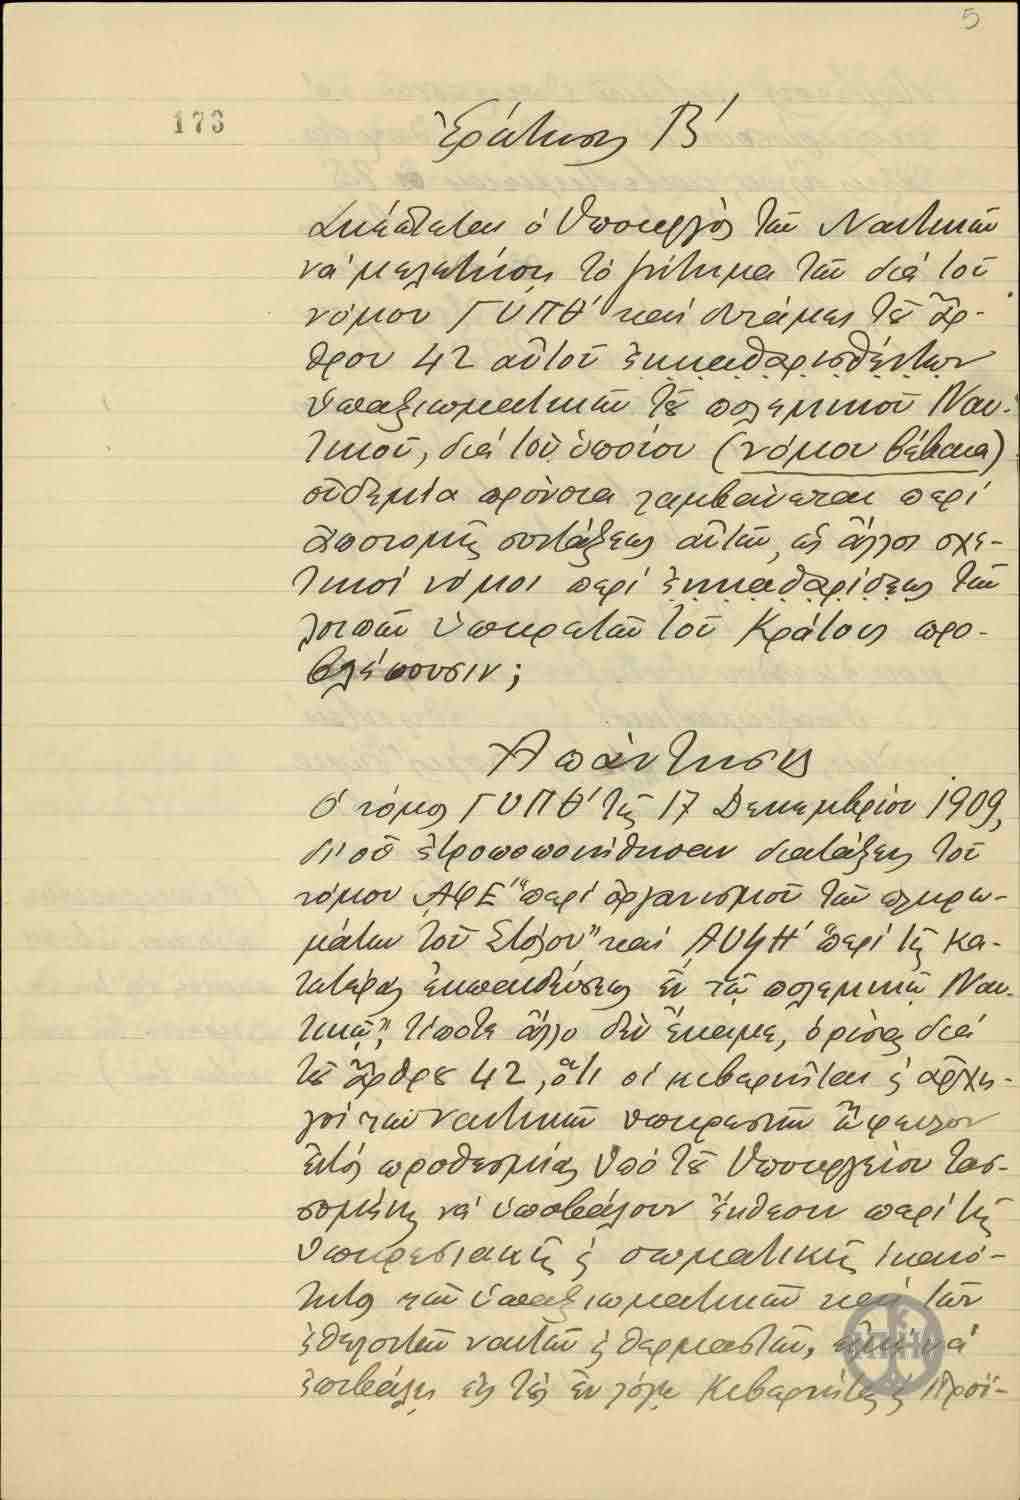 5
173
Ἐρώτησις Β′
Σκέπτεται ὁ Ὑπουργὸς τῶν Ναυτικῶν
νὰ μελετήσῃ τὸ ζήτημα τῶν διὰ τοῦ
νόμου ΓΥΠΘ′ καὶ δυνάμει τοῦ ἄρ-
θρου 42 αὐτοῦ ἐκκαθαρισθέντων
ὑπαξιωματικῶν τοῦ πολεμικοῦ Ναυ-
τικοῦ, διὰ τοῦ ὁποίου (νόμου βέβαια)
οὐδεμία πρόνοια λαμβάνεται περὶ
ἀπονομῆς συντάξεως αὐτῶν, ὡς ἄλλοι σχε-
τικοὶ νόμοι περὶ ἐκκαθαρίσεως τῶν
λοιπῶν ὑπηρετῶν τοῦ Κράτους προ-
βλέπουσιν;
Ἀπάντησις
Ὁ νόμος ΓΥΠΘ′ τῆς 17 Δεκεμβρίου 1909,
δι' οὗ ἐτροποποιήθησαν διατάξεις τοῦ
νόμου ΑΦΕ′ "περὶ ὀργανισμοῦ τῶν πληρω-
μάτων τοῦ Στόλου" καὶ ΑΥϞΗ′ "περὶ τῆς κα-
τωτέρας ἐκπαιδεύσεως ἐν τῷ πολεμικῷ Ναυ-
τικῷ", τίποτε ἄλλο δὲν ἔκαμε, ὁρίσας διὰ
τοῦ ἄρθρου 42, ὅτι οἱ κυβερνῆται ἢ ἀρχη-
γοὶ τῶν ναυτικῶν ὑπηρεσιῶν ὤφειλον
ἐντὸς προθεσμίας ὑπὸ τοῦ Ὑπουργείου τασ-
σομένης νὰ ὑποβάλουν ἔκθεσιν περὶ τῆς
ὑπηρεσιακῆς ἢ σωματικῆς ἱκανό-
τητος τῶν ὑπαξιωματικῶν καὶ τῶν
ἐθελοντῶν ναυτῶν ἢ θερμαστῶν, νὰ
ἐπιβάλῃ εἰς τοὺς ἐν λόγῳ Κυβερνήτας ἢ Προϊ-